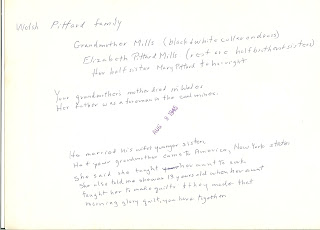 Welsh Pittard family
Grandmother Mills (black & white collar and cuffs)
Elizabeth Pittard Mills (rest are half brothers & sisters)
Her half sister Mary Pittard to her right
Your grandmothers mother died in bled
Her father was a foreman in the coal mines.
AUG 3 1945
He married his wifes younger sister
He & your grandmother came to America, New York state
She said she taught her aunt to cook
She also told me she was 18 years old when her aunt
taught her to make quilts & they made that
morning glory quilt you have together